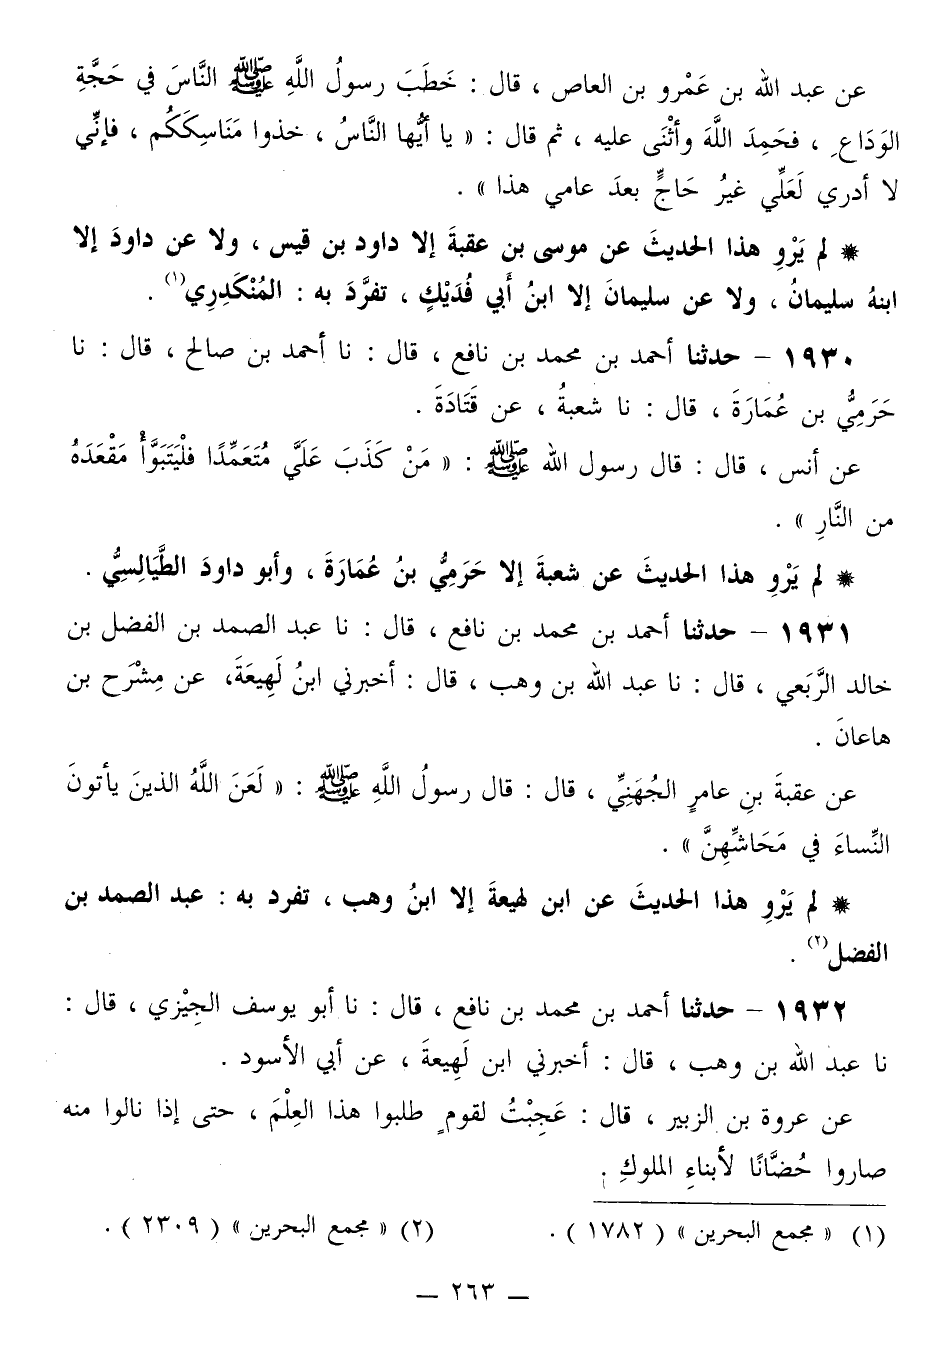 عن عبد الله بن عَمْرو بن العاص ، قال : خَطَبَ رسولُ اللَّهِ ﷺ النَّاسَ في حَجَّةِ
الوَدَاعِ ، فحَمِدَ اللَّهَ وأثْنَى عليه ، ثم قال : « يا أيُّها النَّاسُ ، خذوا مَنَاسِكَكُم ، فإنِّي
لا أدري لَعَلِّي غيرُ حَاجٍّ بعدَ عامي هذا » .
* لم يَرْوِ هذا الحديثَ عن موسى بن عقبةَ إلا داود بن قيس ، ولا عن داودَ إلا
ابنهُ سليمانُ ، ولا عن سليمانَ إلا ابنُ أَبي فُدَيْكٍ ، تفرَّدَ به : المُنْكَدِرِي(١) .
١٩٣٠ – حدثنا أحمد بن محمد بن نافع ، قال : نا أحمد بن صالح ، قال : نا
حَرَمِيُّ بن عُمَارَةَ ، قال : نا شعبةُ ، عن قَتَادَةَ .
عن أنس ، قال : قال رسول الله ﷺ : « مَنْ كَذَبَ عَلَيَّ مُتَعَمِّدًا فلْيَتَبَوَّأْ مَقْعَدَهُ
من النَّارِ » .
* لم يَرْوِ هذا الحديثَ عن شعبةَ إلا حَرَمِيُّ بنُ عُمَارَةَ ، وأبو داودَ الطَّيَالِسِيُّ .
١٩٣١ – حدثنا أحمد بن محمد بن نافع ، قال : نا عبد الصمد بن الفضل بن
خالد الرَّبَعي ، قال : نا عبد الله بن وهب ، قال : أخبرني ابنُ لَهِيعَةَ، عن مِشْرَح بن
هاعانَ .
عن عقبةَ بنِ عامرٍ الجُهَنِيِّ ، قال : قال رسولُ اللَّهِ ﷺ : « لَعَنَ اللَّهُ الذينَ يأتونَ
النِّساءَ في مَحَاشِّهِنَّ » .
* لم يَرْوِ هذا الحديثَ عن ابن لهيعةَ إلا ابنُ وهب ، تفرد به : عبد الصمد بن
الفضل(٢) .
١٩٣٢ – حدثنا أحمد بن محمد بن نافع ، قال : نا أبو يوسف الجِيْزي ، قال :
نا عبد الله بن وهب ، قال : أخبرني ابن لَهِيعةَ ، عن أبي الأسود .
عن عروة بن الزبير ، قال : عَجِبْتُ لقومٍ طلبوا هذا العِلْمَ ، حتى إذا نالوا منه
صاروا حُضَّانًا لأبناءِ الملوكِ .
(١) « مجمع البحرين » ( ١٧٨٢ ) .
(٢) « مجمع البحرين » ( ٢٣٠٩ ) .
– ٢٦٣ –